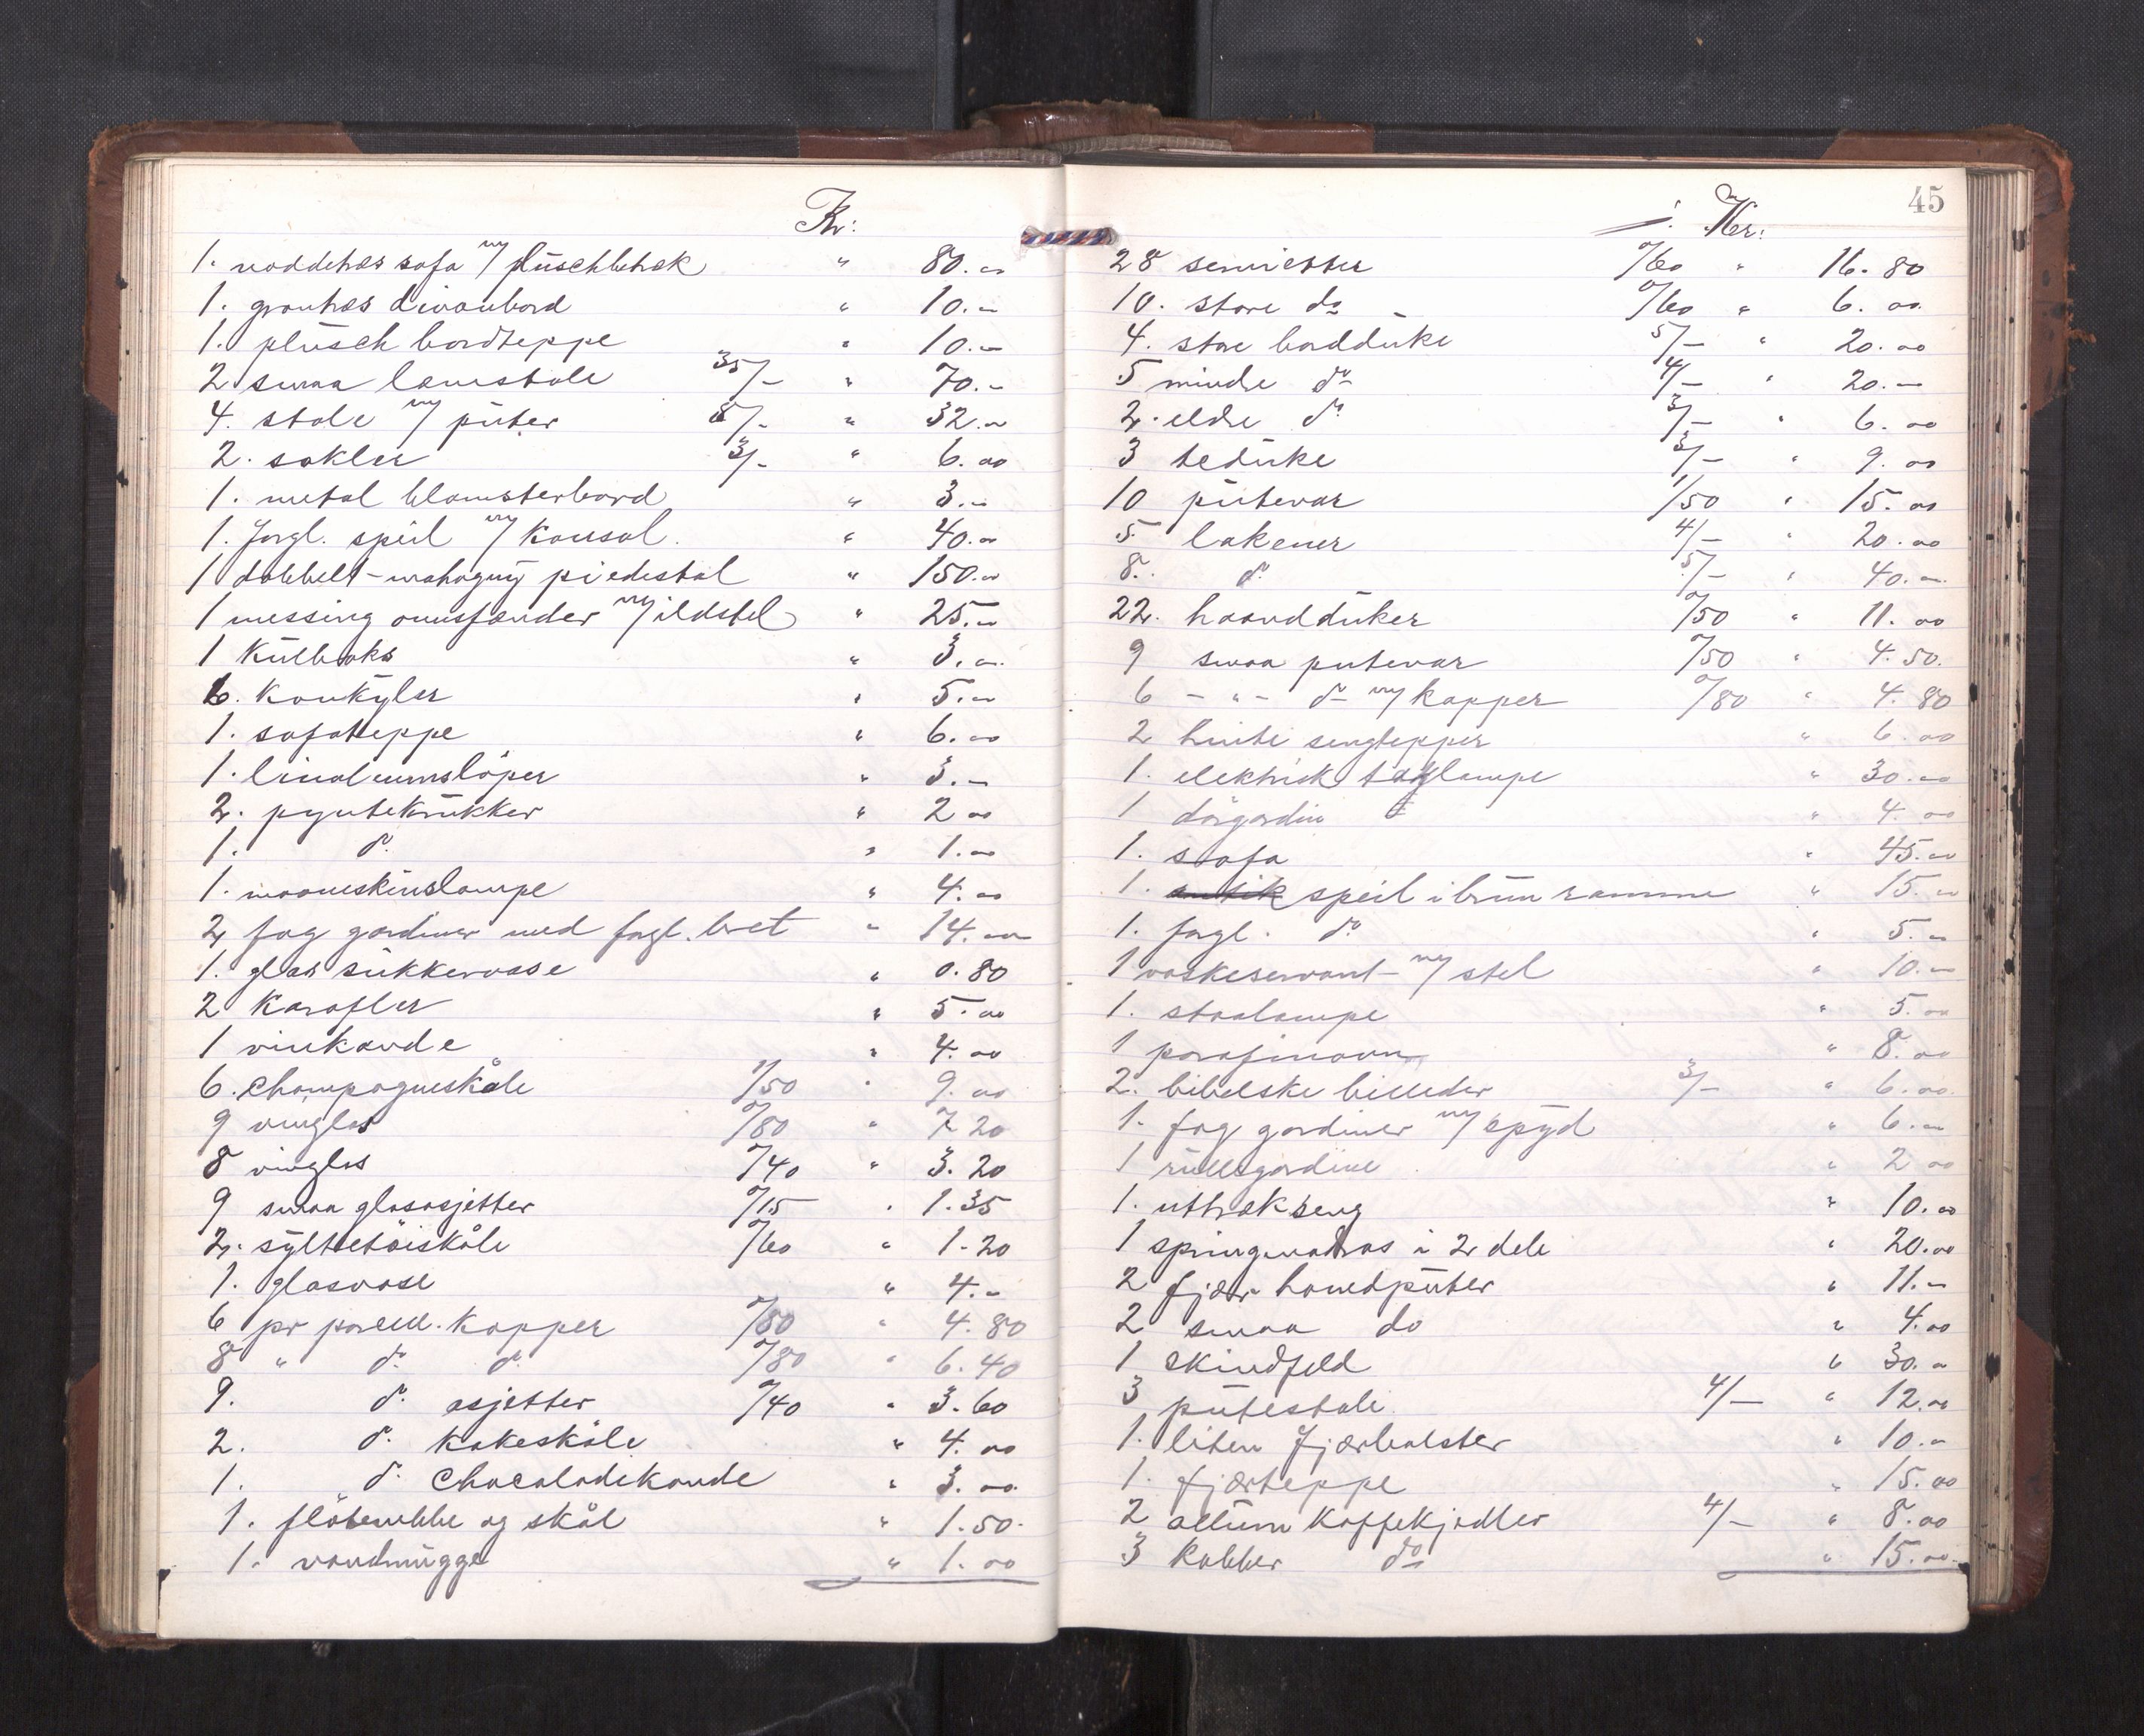 Kr:
1. noddetræs sofa m/ plüschbetræk " 80.00
1. grantræs divanbord " 10.-
1. plüsch bordteppe " 10.-
2 smaa lænestole 35/- " 70.-
4. stole m/ püter 8/- " 32.00
2. sokler 3/- " 6.00
1. metal blomsterbord " 3.-
1. forgl. speil m/ konsol. " 40.00
1 dobbelt-mahogny piedestal " 150.00
1 messing ovnsfænder m/ ildstel " 25.-
1 Külboks " 3.00
6. Konkyler " 5.-
1. sofateppe " 6.00
1. linoleumsløper " 3.-
2. pyntekrükker " 2 00
1. do. " 1.00
1. maaneskinslampe " 4.00
2 fag gardiner med forgl. bret " 14.00
1. glas sükkervase " 0.80
2 Karafler " 5.00
1 vinkande " 4.00
6. Champagneskåle 1/50 " 9.00
9 vinglas 0/80 " 7 20
8 vinglas 0/40 " 3.20
9 smaa glasasjetter 0/15 " 1.35
2. syltetöiskåle 0/60 " 1.20
1. glasvase " 4.-
6 pr porcell. Kopper 0/80 " 4.80
8 " do. do. 0/80 " 6.40
9. do. asjetter 0/40 " 3.60
2. do. kakeskåle " 4.00
1. do. Chocoladekande " 3.00
1. flötemübbe og skål " 1.50
1. vandmügge " 1.00
45
Kr:
28 servietter 0/60 " 16.80
10. store do 0/60 " 6.00
4. store bordduke 5/- " 20.00
5 mindre do 4/- " 20.-
2. eldre do 3/- " 6.00
3 tedüke 3/- " 9.00
10 pütevar 1/50 " 15.00
5 lakener 4/- " 20.00
8. do. 5/- " 40.00
22. haandduker 0/50 " 11.00
9 smaa putevar 0/50 " 4.50
6 - " - do m/ kapper 0/80 " 4.80
2 hvite sengtepper " 6.00
1. elektrisk taklampe " 30.00
1 dörgardin " 4.00
1. sofa " 45.00
1. antik speil i brün ramme " 15.00
1. forgl. do " 5.-
1 vaskeservant m/ stel " 10.00
1. staalampe " 5.00
1 parafinovn " 8.00
2. bibelske billeder 3/- " 6.00
1. fag gardiner m/ spyd " 6.00
1 rüllegardine " 2 00
1. uttrækseng " 10.00
1 springmadras i 2 dele " 20.00
2 fjær hovedpüter " 11.-
2 smaa do " 4.00
1 skindfeld " 30.00
3 pütestole 4/- " 12.00
1. liten fjærbolster " 10.00
1. fjærteppe " 15.00
2 allüm Kaffekjedler 4/- " 8.00
3 Kobber do " 15.00